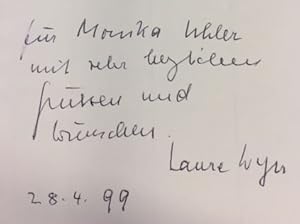 für Monika Uhler
mit sehr herzlichen
grüssen und
wünschen.
Laure Wyss
28.4.99